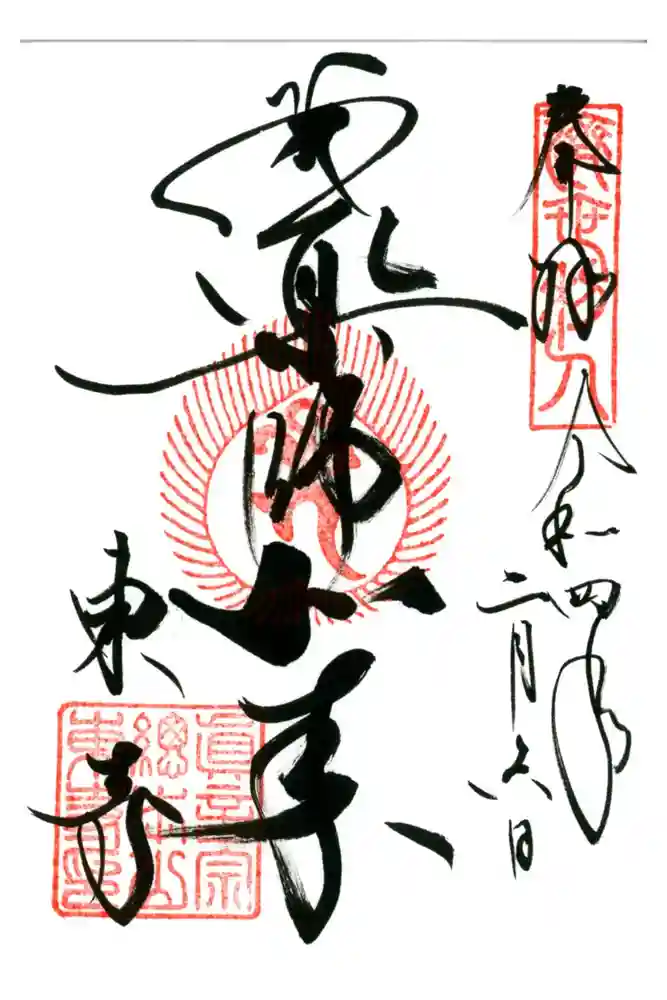 奉拝
令和四年
二月六日
薬師如来
東寺
真言宗
總本山
東寺印